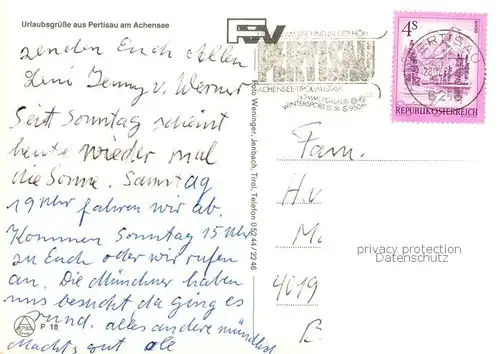 Urlaubsgrüße aus Pertisau am Achensee
zenden Euch Allen
Leni Jenny u. Werner
Seit Sonntag scheint
heute wieder mal
die Sonne. Samstag
19 Uhr fahren wir ab.
Kommen Sonntag 15 Uhr
zu Euch oder wir rufen
an. Die Münchner haben
uns besucht da ging es
rund. alles andere mündlich
Machts gut alle
P 18
Foto Weninger, Jenbach, Tirol, Telefon 05244/2246
PERTISAU
ACHENSEE-TIROL-AUSTRIA
WINTERSPORT
950m
4S
PERTISAU
REPUBLIK ÖSTERREICH
Fam.
H. u
M
4019
B
privacy protection
Datenschutz